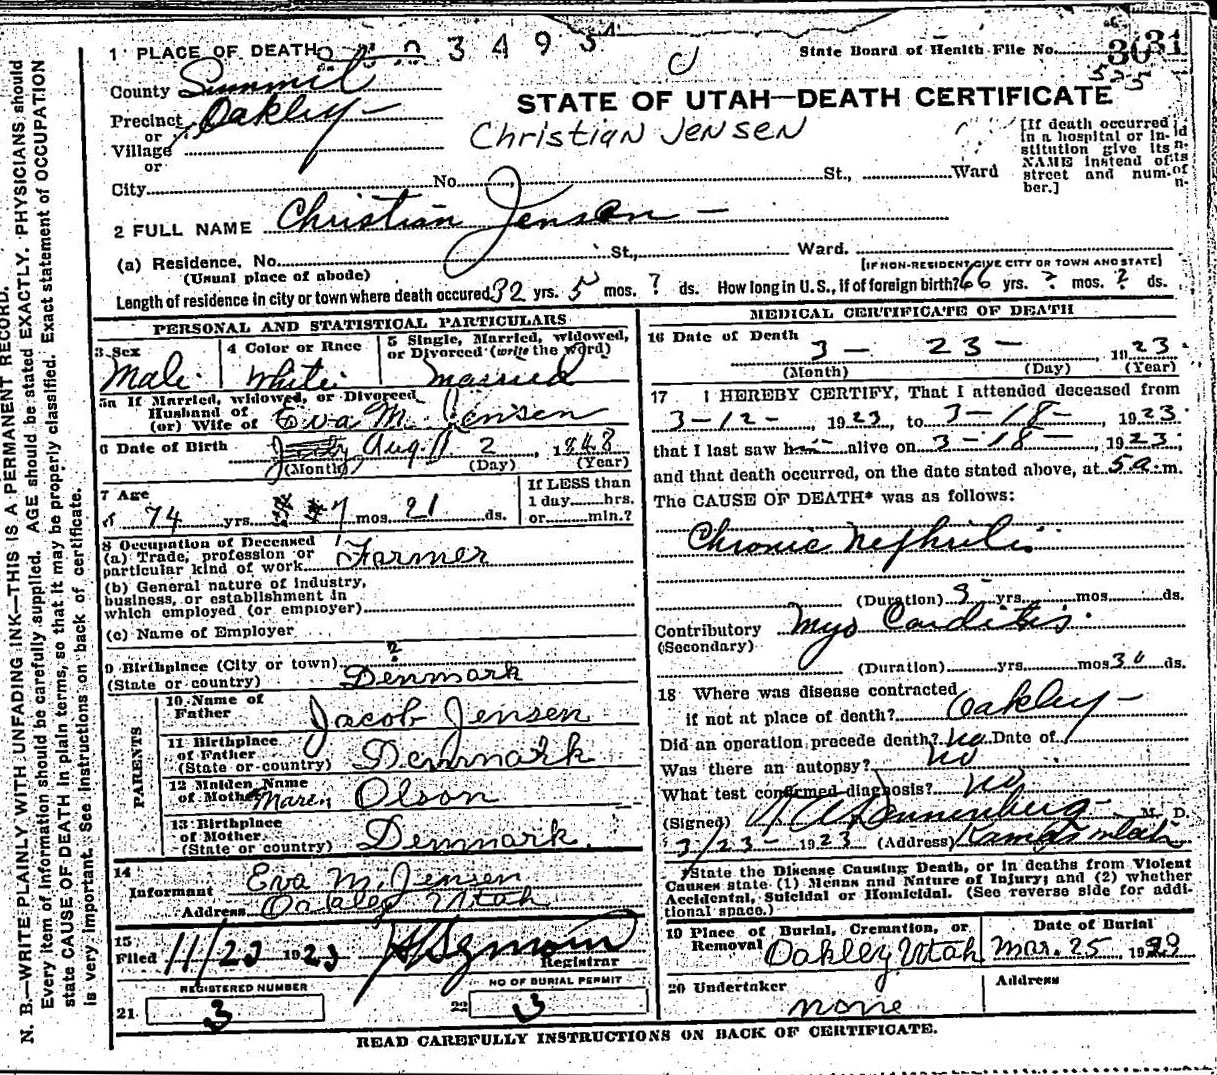 1 PLACE OF DEATH
3495
State Board of Health File No.
County Summit
Precinct Oakley
or
Village
or
STATE OF UTAH—DEATH CERTIFICATE
Christian Jensen
[If death occurred in a hospital or institution give its NAME instead of street and number.]
City No. St., Ward
2 FULL NAME Christian Jensen
(a) Residence, No. St., Ward.
(Usual place of abode) [IF NON-RESIDENT GIVE CITY OR TOWN AND STATE]
Length of residence in city or town where death occured 32 yrs. 5 mos. ? ds. How long in U.S., if of foreign birth? 66 yrs. ? mos. ? ds.
PERSONAL AND STATISTICAL PARTICULARS
3 Sex
Male
4 Color or Race
White
5 Single, Married, widowed,
or Divorced (write the word)
Married
5a If Married, widowed, or Divorced
Husband of
(or) Wife of Eva M. Jensen
6 Date of Birth Aug. 2, 1848
(Month) (Day) (Year)
7 Age
74 yrs. 7 mos. 21 ds.
If LESS than
1 day hrs.
or min.?
8 Occupation of Deceased
(a) Trade, profession or
particular kind of work Farmer
(b) General nature of industry,
business, or establishment in
which employed (or employer)
(c) Name of Employer
9 Birthplace (City or town) ?
(State or country) Denmark
PARENTS
10 Name of
Father Jacob Jensen
11 Birthplace
of Father
(State or country) Denmark
12 Maiden Name
of Mother Maren Olson
13 Birthplace
of Mother
(State or country) Denmark.
14
Informant Eva M. Jensen
Address Oakley Utah
15
Filed 11/23 1923
Registrar
REGISTERED NUMBER
21 3
NO OF BURIAL PERMIT
22 3
MEDICAL CERTIFICATE OF DEATH
16 Date of Death
3 - 23 - , 1923
(Month) (Day) (Year)
17 I HEREBY CERTIFY, That I attended deceased from
3-12-, 1923, to 3-18-, 1923
that I last saw him alive on 3-18-, 1923,
and that death occurred, on the date stated above, at 5 a. m.
The CAUSE OF DEATH* was as follows:
Chronic Nephritis
(Duration) yrs. mos. ds.
Contributory Myo Carditis.
(Secondary)
(Duration) yrs. mos 30 ds.
18 Where was disease contracted
if not at place of death? Oakley
Did an operation precede death? no Date of
Was there an autopsy? No
What test confirmed diagnosis? no
(Signed) M. D.
3/23- 1923 (Address) Kamas Utah
*State the Disease Causing Death, or in deaths from Violent
Causes state (1) Menns and Nature of Injury; and (2) whether
Accidental, Suicidal or Homicidal. (See reverse side for addi-
tional space.)
19 Place of Burial, Cremation, or
Removal Oakley Utah
Date of Burial
Mar. 25
20 Undertaker
none
Address
READ CAREFULLY INSTRUCTIONS ON BACK OF CERTIFICATE.
N. B.—WRITE PLAINLY WITH UNFADING INK—THIS IS A PERMANENT RECORD.
Every item of information should be carefully supplied. AGE should be stated EXACTLY. PHYSICIANS should
state CAUSE OF DEATH in plain terms, so that it may be properly classified. Exact statement of OCCUPATION
is very important. See instructions on back of certificate.